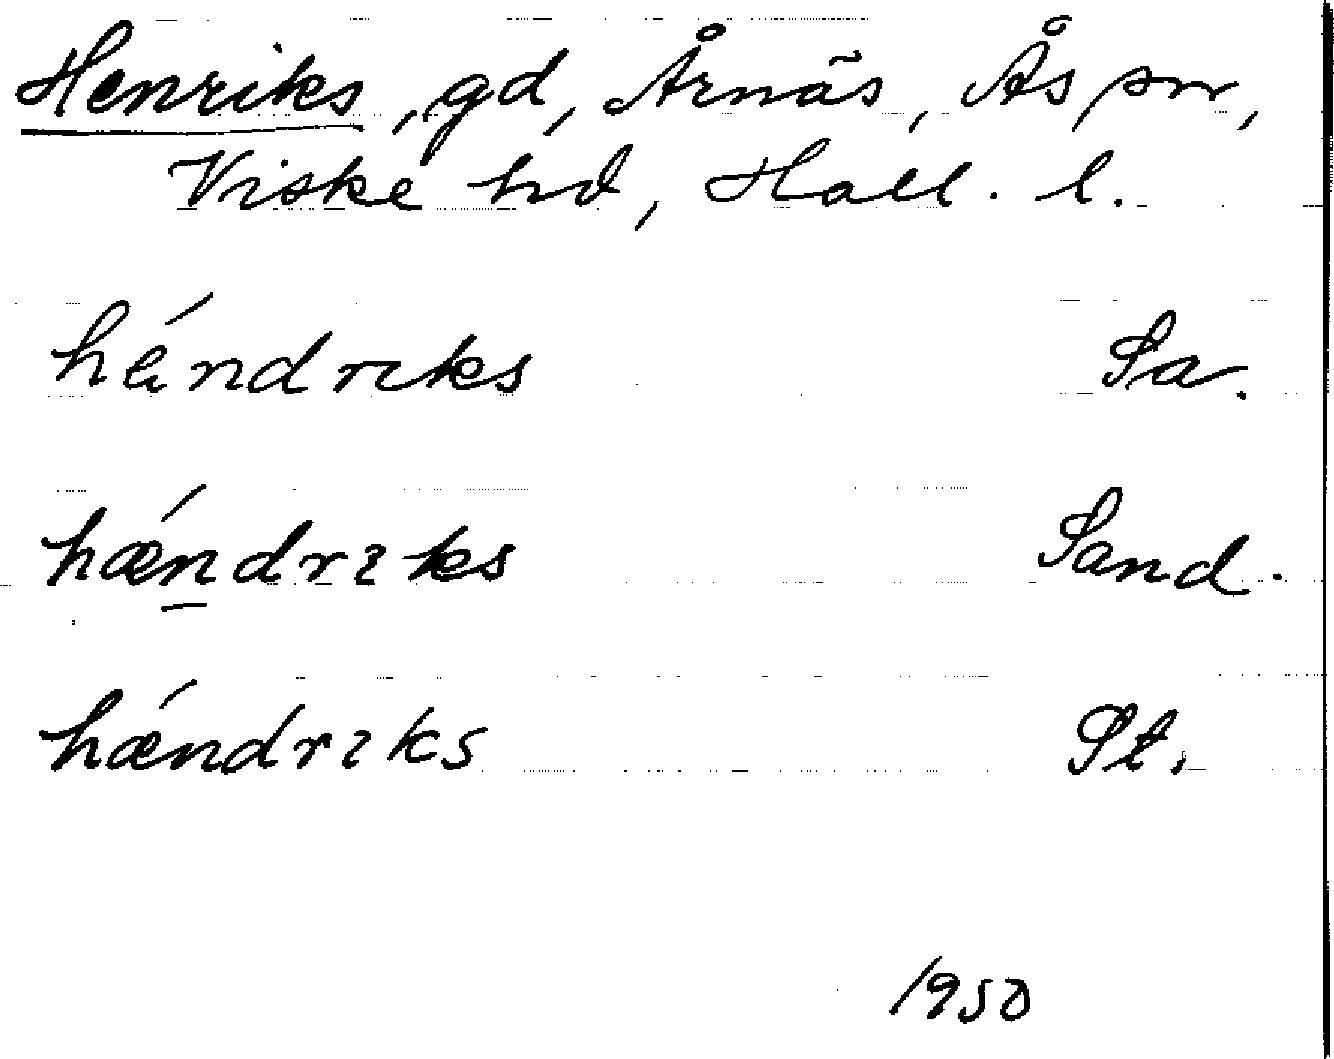 Henriks, gd, Årnäs, Ås sn,
Viske hd, Hall. l.
hǽndrıks Sa.
hǽndrıks Sand.
hǽndrıks St.
1950